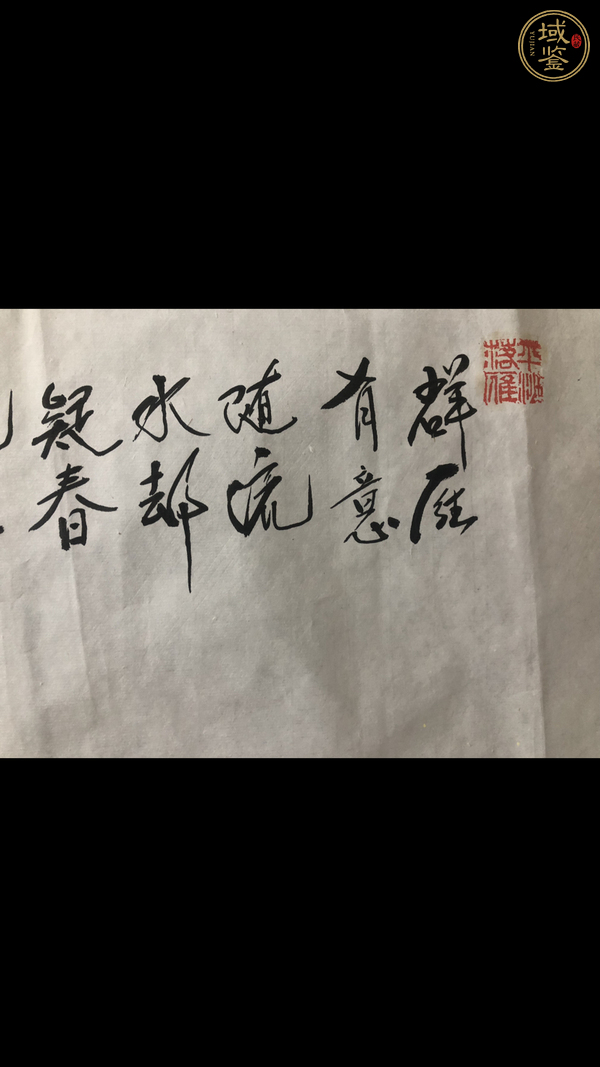 域鉴
YUJIAN
平沙落雁
群雁
有意
随流
水却
疑春